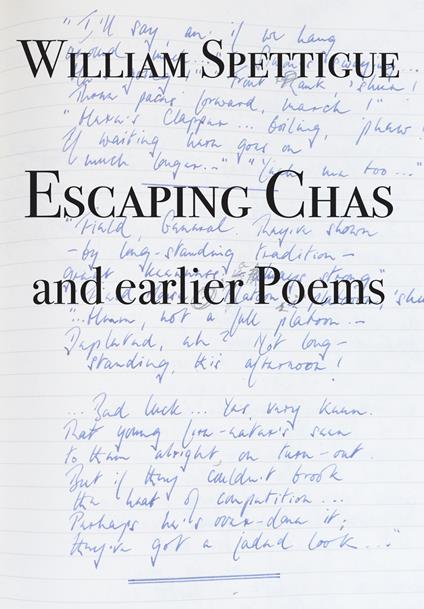 "I'll say, an' if we hang
around
WILLIAM SPETTIGUE
Front Rank, 'shun!
Three paces forward, march!"
"Here's Clapper... boiling, phew!
If waiting here goes on
much longer..." "Yeah me too..."
ESCAPING CHAS
"Field, General. They've shown
– by long-standing tradition –
great keenness always strong"
and earlier Poems
"...Hmm, not a full platoon –
Depleted, eh? Not long-
standing, this afternoon!
...Bad luck... Yes, very keen.
That young fire-eater's seen
to them alright, on turn-out.
But if they couldn't brook
the heat of competition...
Perhaps he's over-done it;
they've got a jaded look..."